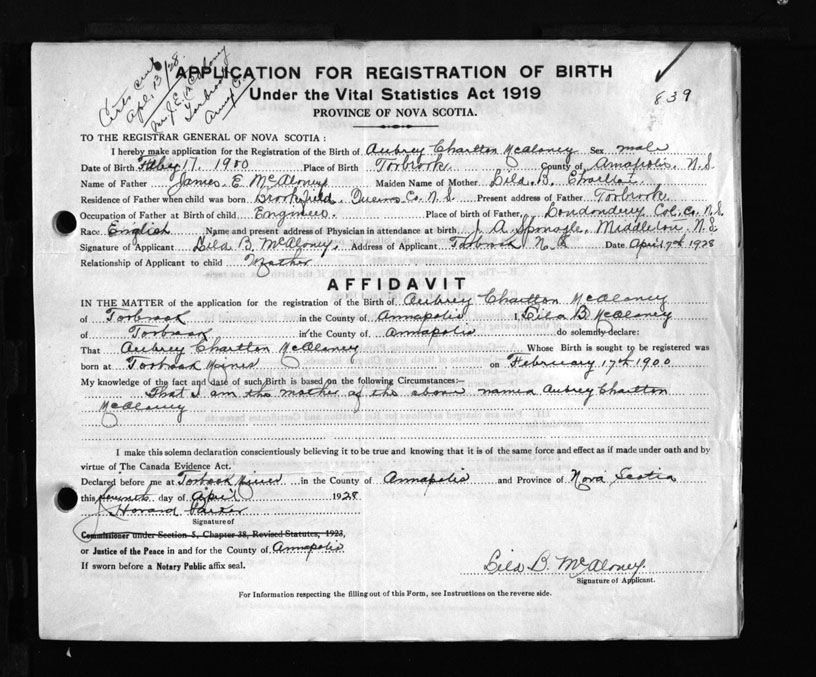 Certs sent
Apl. 13/28
Mrs J. E. McAloney
Torbrook
Anna Co.
APPLICATION FOR REGISTRATION OF BIRTH
839
Under the Vital Statistics Act 1919
PROVINCE OF NOVA SCOTIA.
TO THE REGISTRAR GENERAL OF NOVA SCOTIA :
I hereby make application for the Registration of the Birth of Aubrey Charlton McAloney Sex male
Date of Birth Feby 17, 1900 Place of Birth Torbrook County of Annapolis. N.S.
Name of Father James E McAloney Maiden Name of Mother Lila. B. Charlton
Residence of Father when child was born Brookfield, Queens Co. N.S. Present address of Father Torbrook
Occupation of Father at Birth of child Engineer. Place of birth of Father, Londonderry Col. Co. N.S.
Race. English Name and present address of Physician in attendance at birth J. A. Sponagle, Middleton, N.S
Signature of Applicant Lila B. McAloney. Address of Applicant Torbrook N.S. Date April 7th 1928
Relationship of Applicant to child Mother
AFFIDAVIT
IN THE MATTER of the application for the registration of the Birth of Aubrey Charlton McAloney
of Torbrook in the County of Annapolis I, Lila B McAloney
of Torbrook in the County of Annapolis do solemnly declare:
That Aubrey Charlton McAloney Whose Birth is sought to be registered was
born at Torbrook Mines on February 17th 1900
My knowledge of the fact and date of such Birth is based on the following Circumstances:—
That I am the mother of the above named Aubrey Charlton
McAloney
I make this solemn declaration conscientiously believing it to be true and knowing that it is of the same force and effect as if made under oath and by
virtue of The Canada Evidence Act.
Declared before me at Torbrook Mines in the County of Annapolis and Province of Nova Scotia
this seventh day of April 1928
Howard Parker
Signature of
Commissioner under Section 5, Chapter 38, Revised Statutes, 1923,
or Justice of the Peace in and for the County of Annapolis
If sworn before a Notary Public affix seal.
Lila B. McAloney.
Signature of Applicant.
For Information respecting the filling out of this Form, see Instructions on the reverse side.